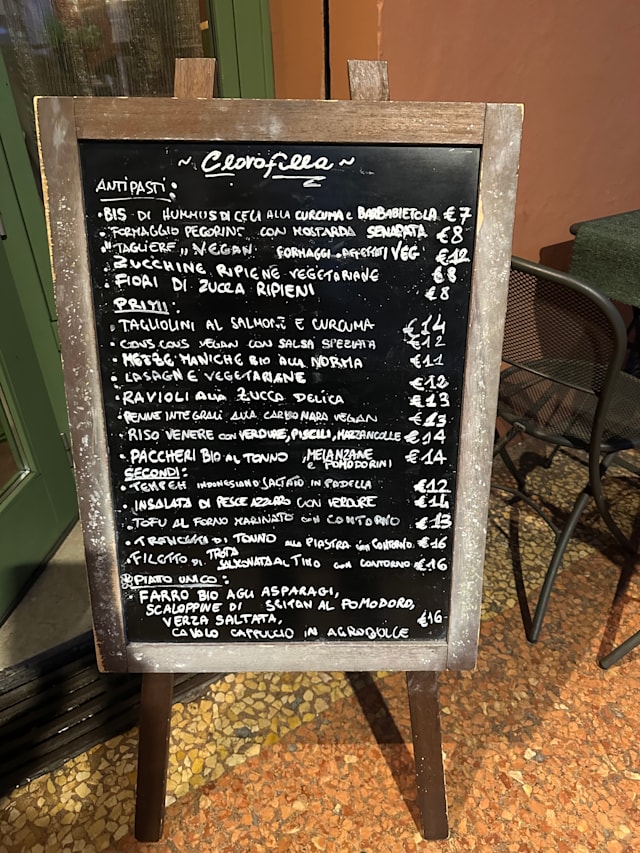 ~ Clorofilla ~
ANTIPASTI:
• BIS DI HUMMUS DI CECI ALLA CURCUMA e BARBABIETOLA €7
• FORMAGGIO PECORINO CON MOSTARDA SENAPATA €8
• "TAGLIERE" VEGAN FORMAGGI e AFFETTATI VEG €12
• ZUCCHINE RIPIENE VEGETARIANE €8
• FIORI DI ZUCCA RIPIENI €8
PRIMI:
• TAGLIOLINI AL SALMONE E CURCUMA €14
• COUS COUS VEGAN CON SALSA SPEZIATA €12
• MEZZE MANICHE BIO ALLA NORMA €11
• LASAGNE VEGETARIANE €12
• RAVIOLI ALLA ZUCCA DELICA €13
• PENNE INTEGRALI ALLA CARBONARA VEGAN €13
• RISO VENERE CON VERDURE, PISELLI, MAZZANCOLLE €14
• PACCHERI BIO AL TONNO, MELANZANE e POMODORINI €14
SECONDI:
• TEMPEH INDONESIANO SALTATO IN PADELLA €12
• INSALATA DI PESCE AZZURRO CON VERDURE €14
• TOFU AL FORNO MARINATO CON CONTORNO €13
• TRANCETTO DI TONNO ALLA PIASTRA CON CONTORNO €16
• FILETTO DI TROTA SALMONATA AL TIMO CON CONTORNO €16
PIATO UNICO:
FARRO BIO AGLI ASPARAGI,
SCALOPPINE DI SEITAN AL POMODORO,
VERZA SALTATA, €16
CAVOLO CAPPUCCIO IN AGRODOLCE